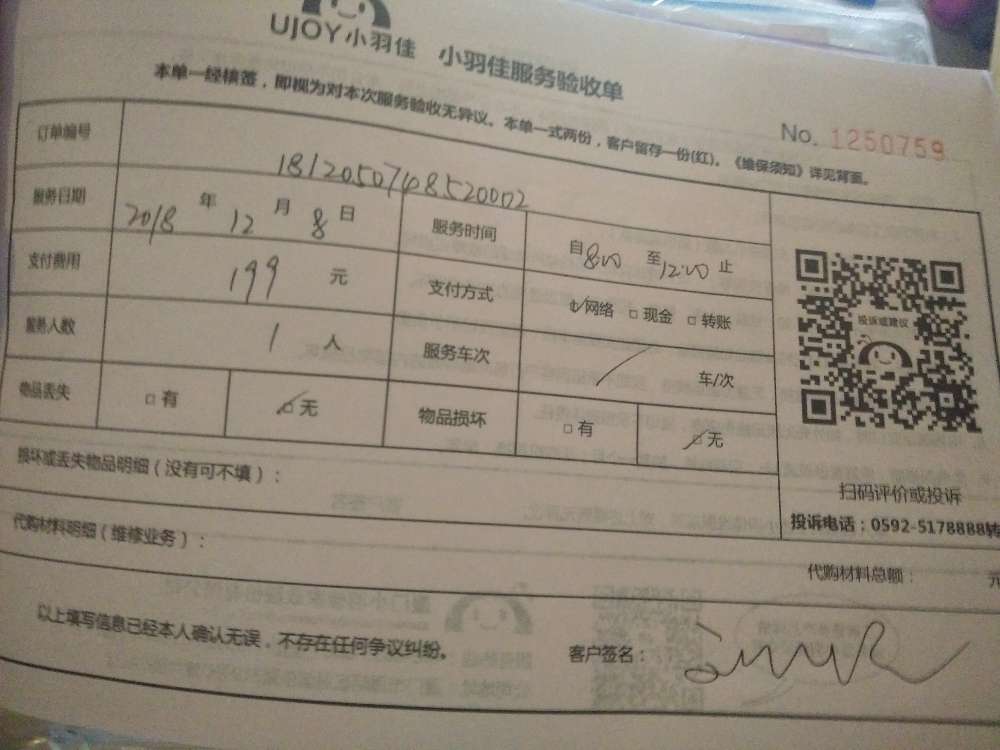 UJOY小羽佳 小羽佳服务验收单
本单一经核签，即视为对本次服务验收无异议。本单一式两份，客户留存一份(红)。《维保须知》详见背面。
No. 1250759
订单编号 1812050748520002
服务日期 2018 年 12 月 8 日 服务时间 自 8:00 至 12:00 止
支付费用 199 元 支付方式 ☑网络 □现金 □转账
服务人数 1 人 服务车次 / 车/次
物品丢失 □有 ☑无 物品损坏 □有 ☑无
投诉或建议
扫码评价或投诉
投诉电话：0592-5178888转
损坏或丢失物品明细（没有可不填）：
代购材料明细（维修业务）：
代购材料总额： 元
以上填写信息已经本人确认无误，不存在任何争议纠纷。 客户签名：